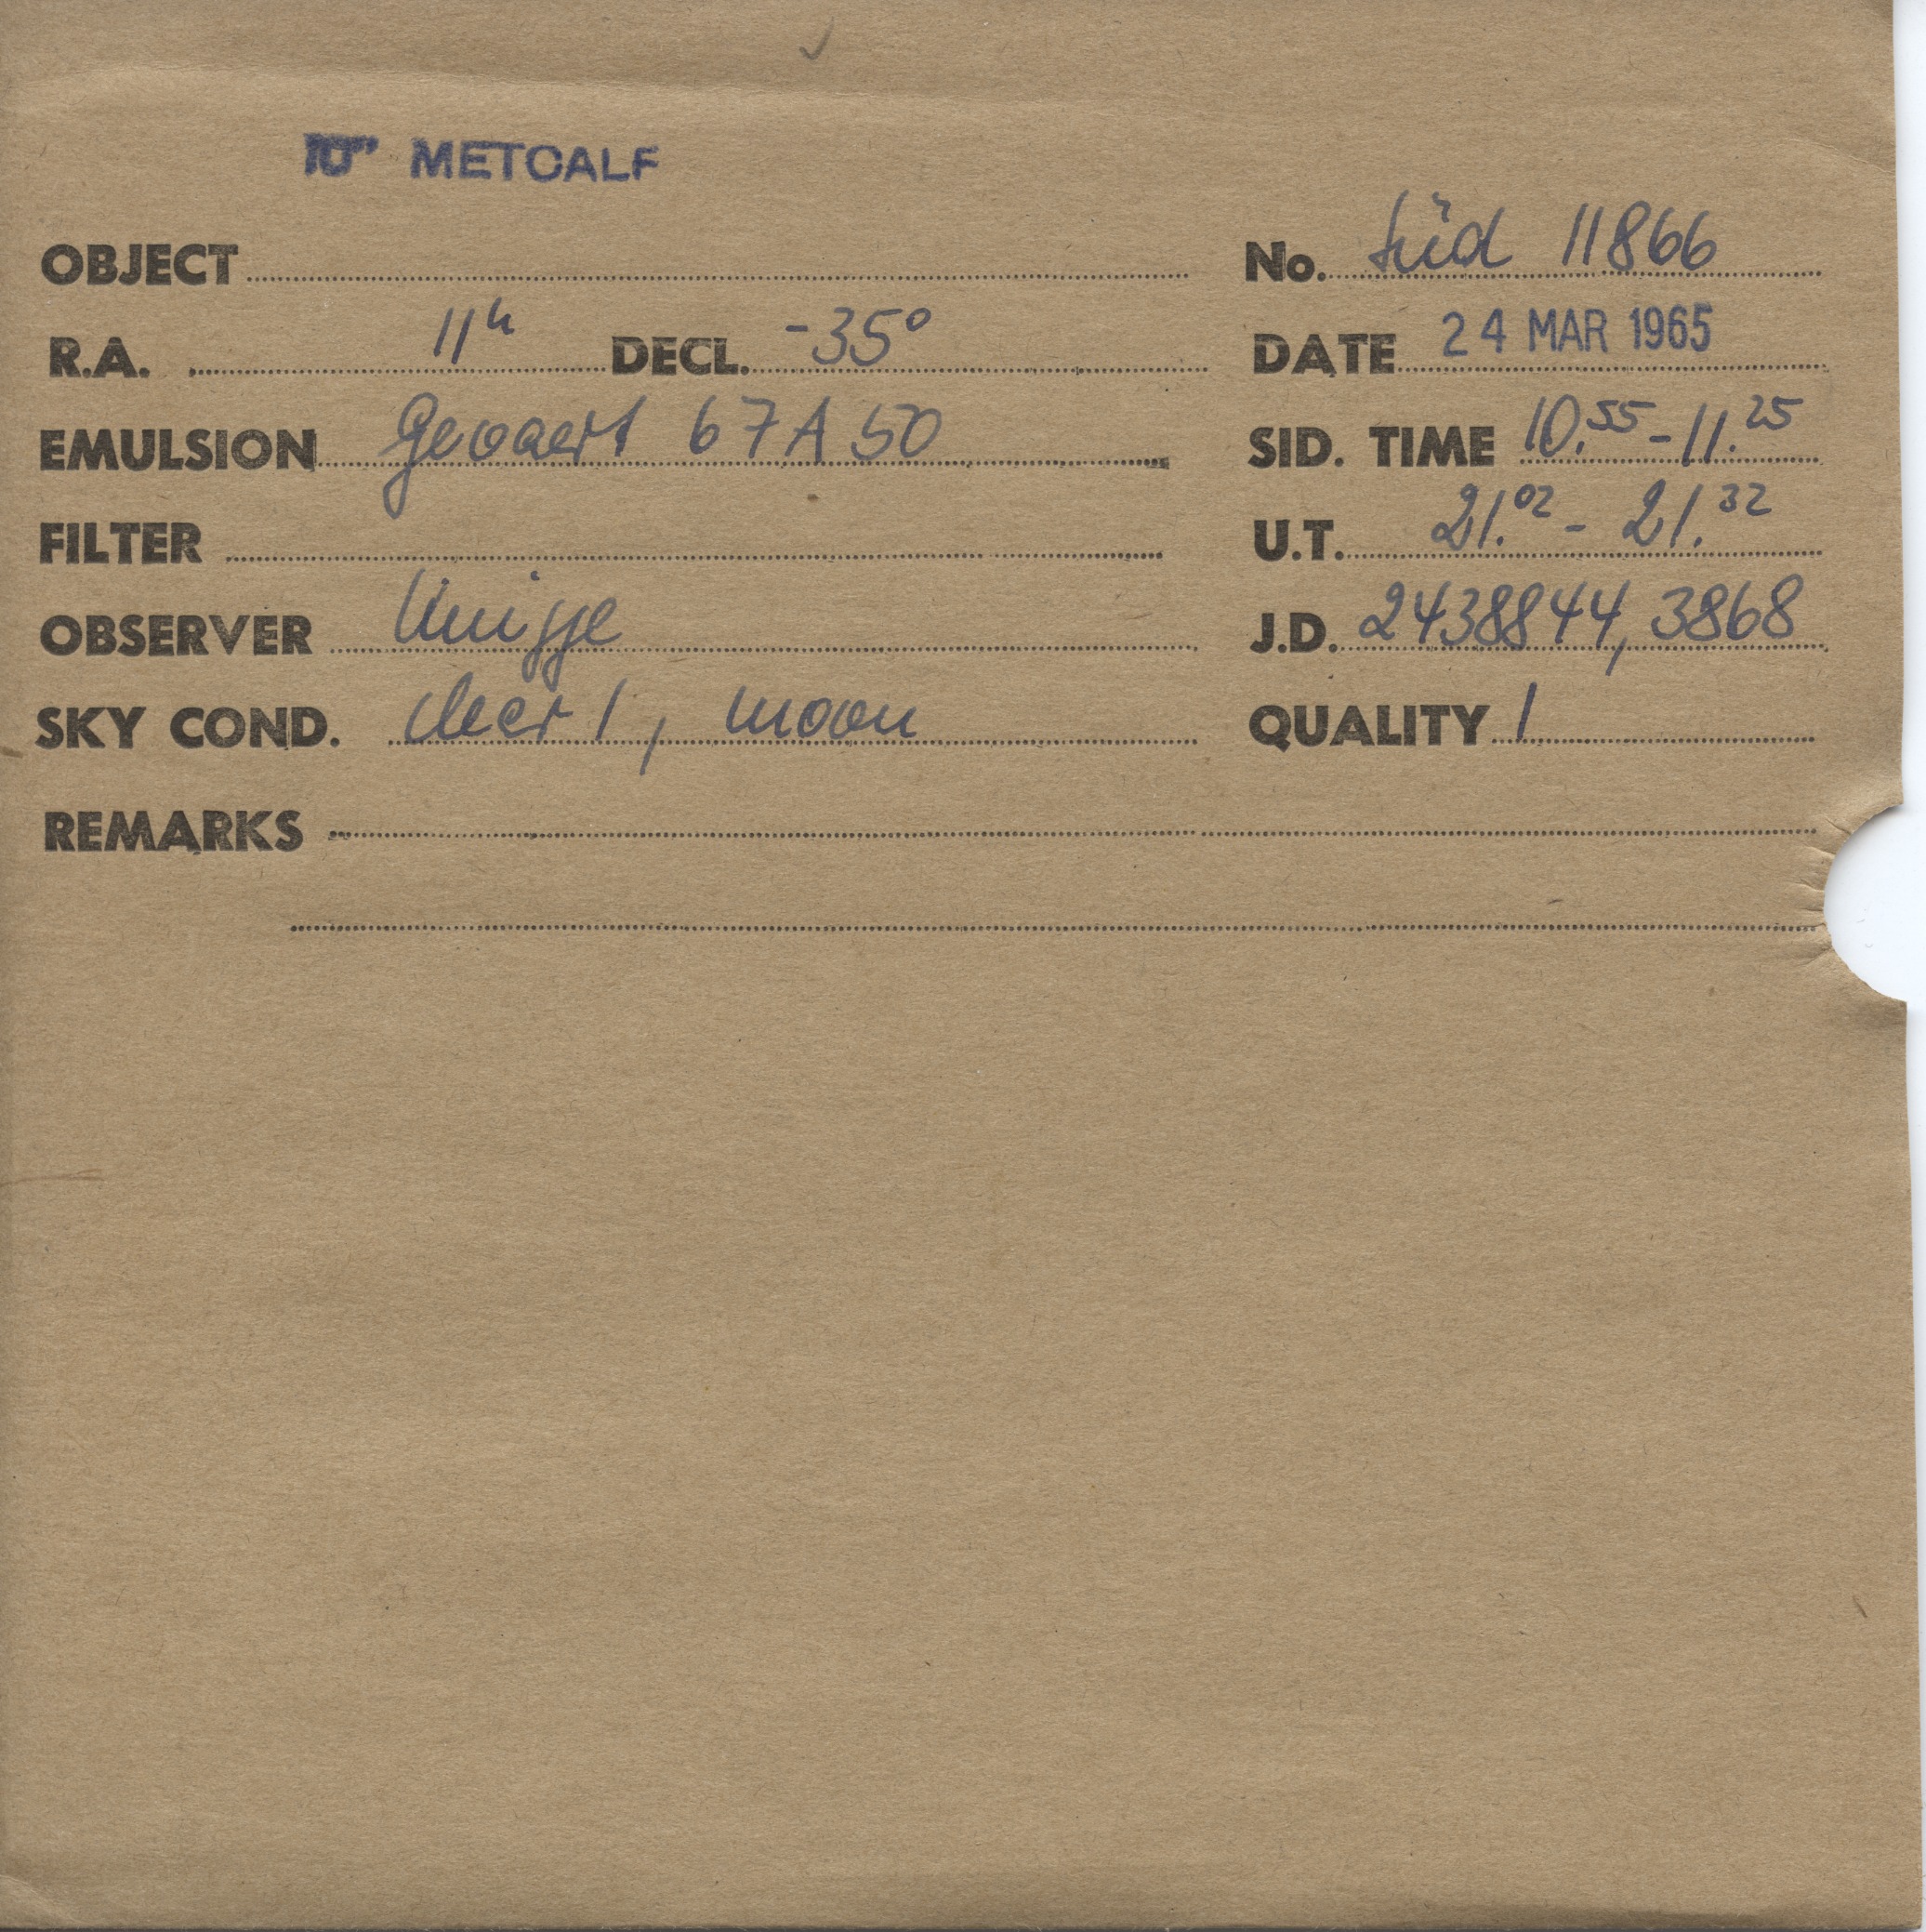 10" METCALF
OBJECT No. Süd 11866
R.A. 11h DECL. -35° DATE 24 MAR 1965
EMULSION Gevaert 67A50 SID. TIME 10.55 - 11.25
FILTER U.T. 21.02 - 21.32
OBSERVER J.D. 2438844,3868
SKY COND. clear 1, moon QUALITY 1
REMARKS